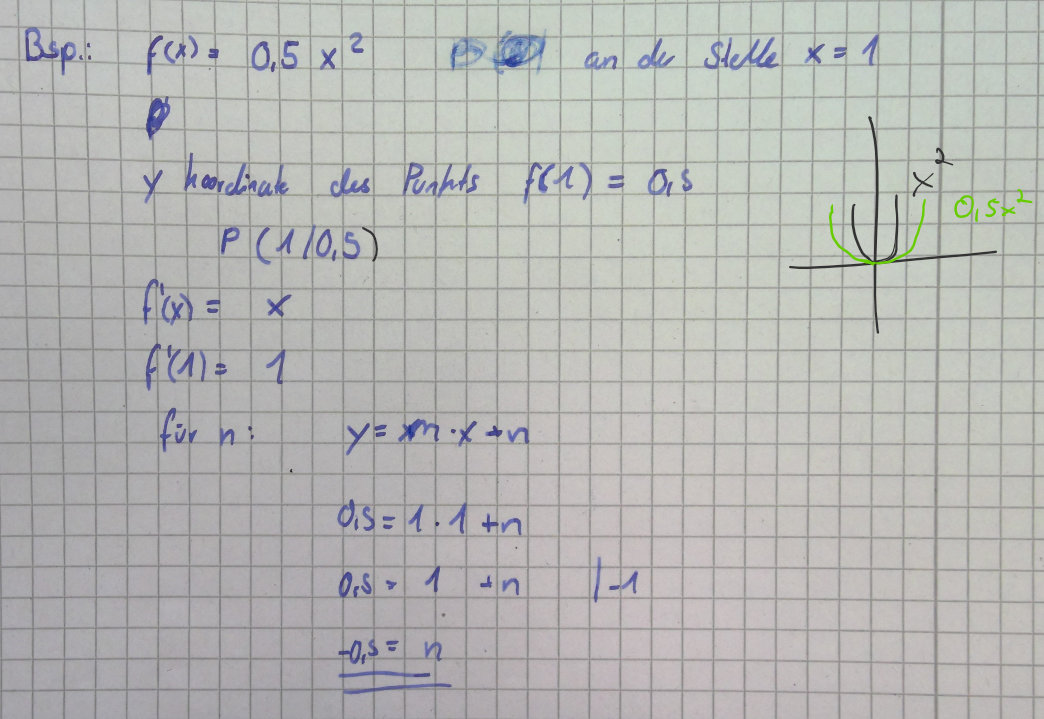 Bsp.: f(x) = 0,5 x² an der Stelle x = 1
y koordinate des Punkts f(1) = 0,5
P (1/0,5)
x²
0,5x²
f'(x) = x
f'(1) = 1
für n: y = m · x + n
0,5 = 1 · 1 + n
0,5 = 1 + n | -1
-0,5 = n